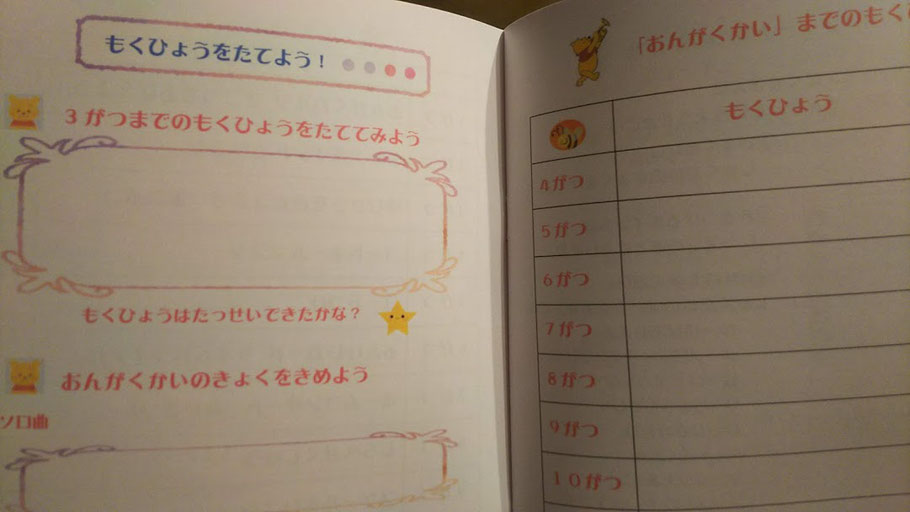 もくひょうをたてよう!
3がつまでのもくひょうをたててみよう
もくひょうはたっせいできたかな?
おんがくかいのきょくをきめよう
ソロ曲
「おんがくかい」までのもく
もくひょう
4がつ
5がつ
6がつ
7がつ
8がつ
9がつ
10がつ